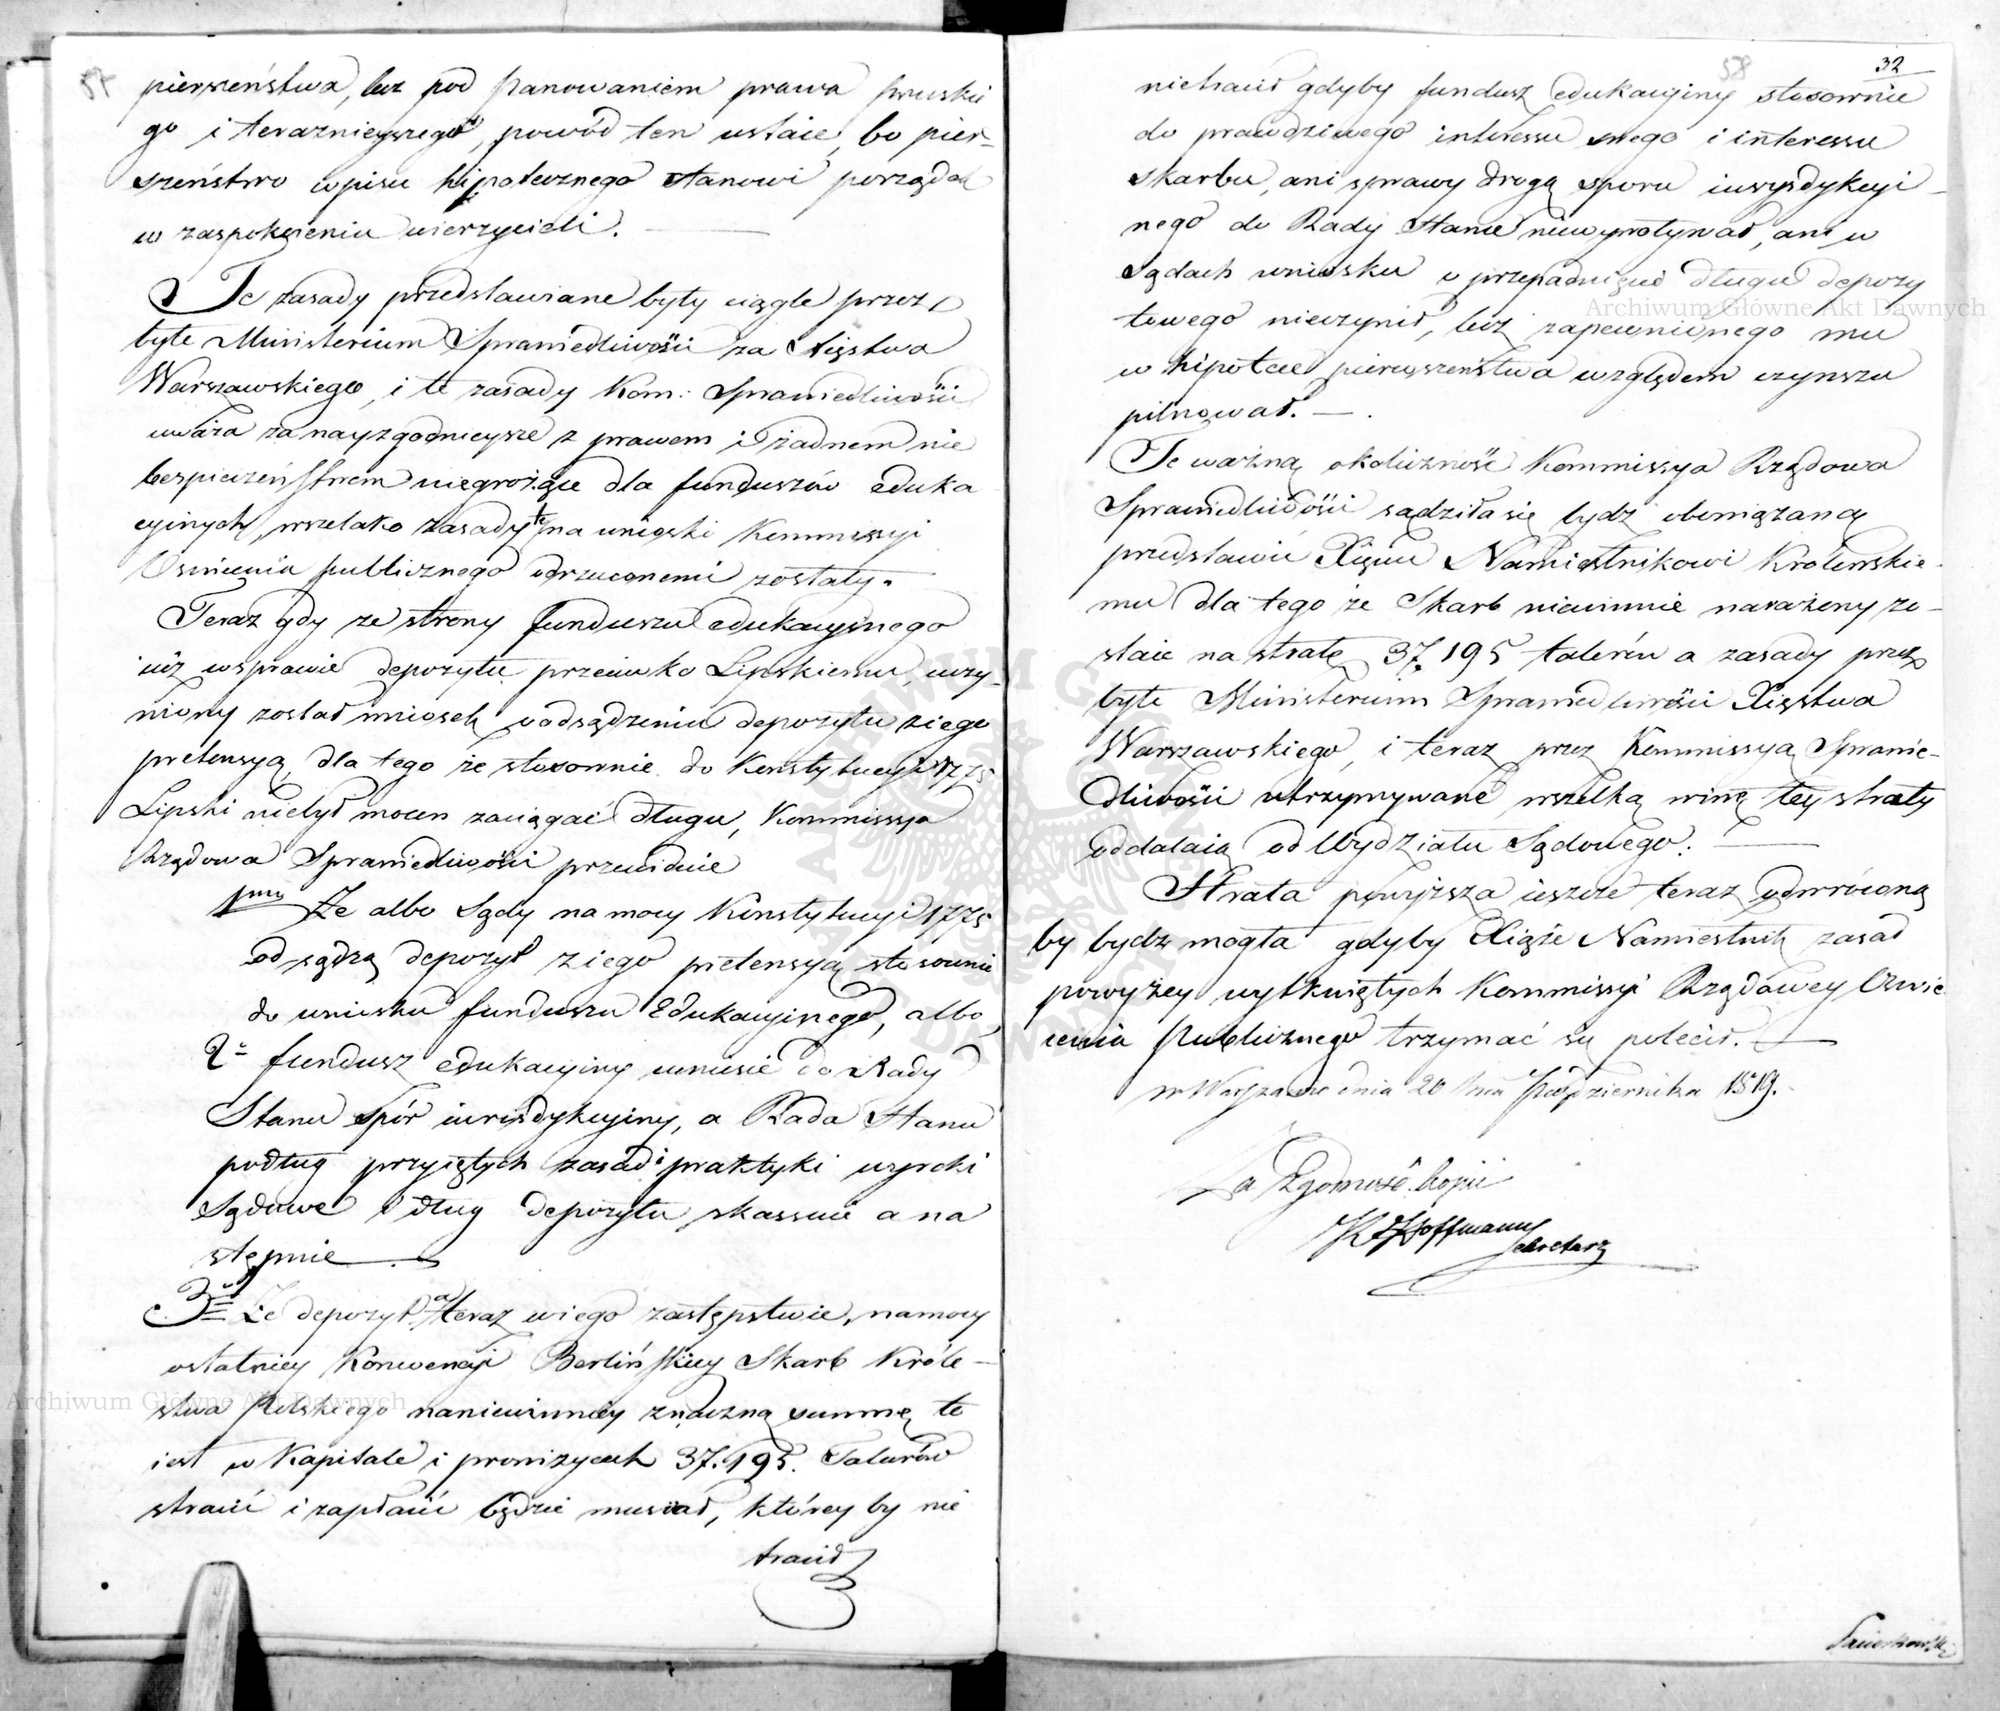 57
pierszeństwa, lecz pod panowaniem prawa pruskie
go i teraznieyszego, powód ten ustaie, bo pier-
szeństwo wpisu hipotecznego stanowi porządek
w zaspokoieniu wierzycieli.
Te zasady przedstawiane były ciągle przez
byłe Ministerium Sprawiedliwości za Xięstwa
Warszawskiego, i te zasady Kom: Sprawiedliwości
uważa za nayzgodnieysze z prawem i żadnem nie
bespieczeństwem niegrożące dla funduszów eduka
cyinych, wszelako zasady te na wnioski Kommissyi
Oświecenia publicznego odrzuconemi zostały.
Teraz gdy ze strony funduszu edukacyinego
iuż w sprawie depozytu przeciwko Lipskiemu, uczy-
niony został wniosek o odsądzenie depozytu z iego
pretensyą, dla tego że stosownie do Konstytucyi 1775
Lipski niebył mocen zaciągać długu, Kommissya
Rządowa Sprawiedliwości przewiduie
1mo Że albo Sądy na mocy Konstytucyi 1775
odsądzą depozyt z iego pretensyą stosownie
do wniosku funduszu Edukacyinego, albo,
2o fundusz edukacyiny wniesie do Rady
Stanu spór iurisdykcyiny, a Rada Stanu
podług przyiętych zasad i praktyki wyroki
Sądowe i dług depozytu skassuie a na
stępnie
3o Że depozyt a teraz w iego zastępstwie, na mocy
ostatniey Konwencyi Berlińskiey Skarb Króle-
stwa Polskiego nayniewinniey znaczną summę to
iest w Kapitale i prowizyach 37.195. Talarów
stracić i zapłacić będzie musiał, którey by nie
tracił
58
32
niehawił gdyby fundusz edukacyiny stosownie
do prawdziwego interessu swego i interessu
skarbu, ani sprawy drogą sporu iurysdykcyi-
nego do Rady Stanu niewywoływał, ani w
Sądach wniosku o przepadnięcie długu depozy
towego nieczynił, lecz zapewnionego mu
w hipotece pierwszeństwa względem czynszu
pilnował.
Te ważną okoliczność Kommissya Rządowa
Sprawiedliwości sądziła się bydź obowiązaną
przedstawić Xięciu Namiestnikowi Królewskie-
mu dla tego że Skarb niewinnie narażony zo-
staie na stratę 37.195 talerów a zasady przez
byłe Ministerium Sprawiedliwości Xięstwa
Warszawskiego, i teraz przez Kommissyą Sprawie-
dliwości utrzymywane wszelką winę tey straty
oddalaią od Wydziału Sądowego.
Strata powyższa ieszcze teraz odwróconą
by bydz mogła gdyby Xiąże Namiestnik zasad
powyżey wytkniętych Kommissyi Rządowey Oświe
cenia Publicznego trzymać się polecił.
w Warszawie dnia 20 Października 1819.
Za Zgodność Kopii
Hoffmann
Sekretarz
Archiwum Główne Akt Dawnych
Archiwum Główne Akt Dawnych